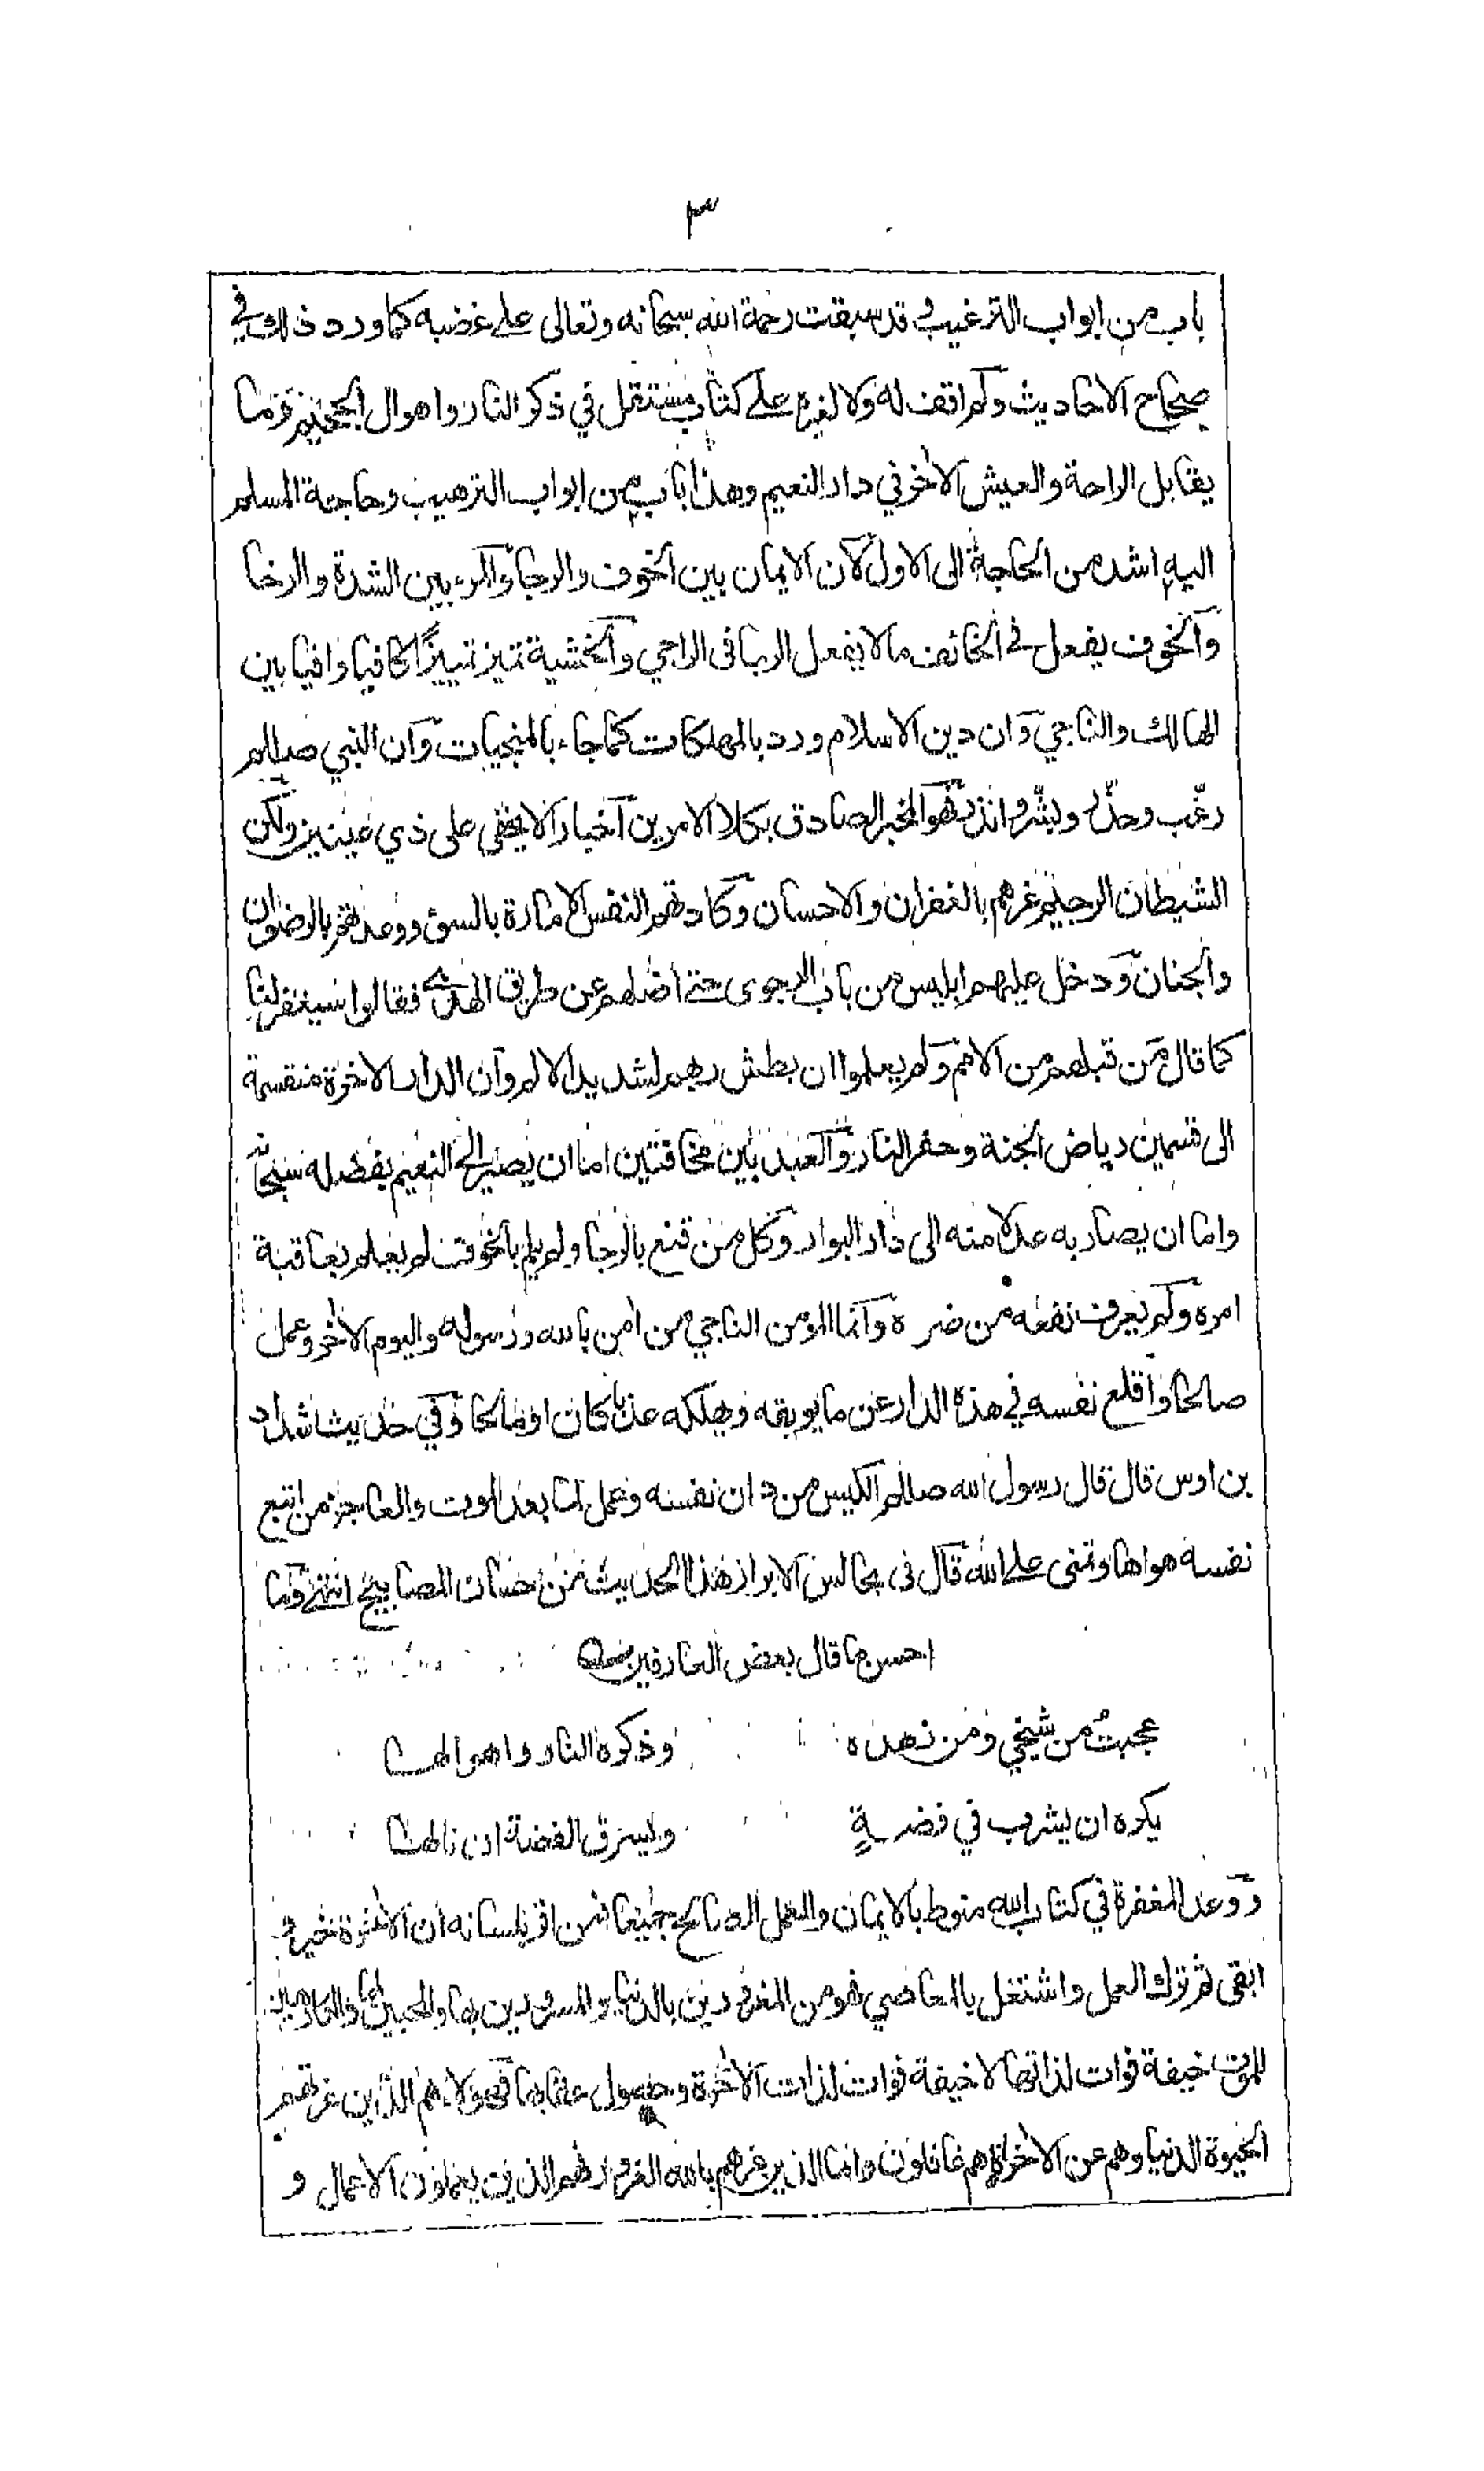 ٣
باب من ابواب الترغيب وقد سبقت رحمة الله سبحانه وتعالى على غضبه كما ورد ذلك في
صحاح الاحاديث ولم اقف له ولا لغيره على كتاب مستقل في ذكر النار واهوال الجحيم وما
يقابل الراحة والعيش الاخر في دار النعيم وهذا باب من ابواب الترهيب وحاجة المسلم
اليه اشد من الحاجة الى الاول لان الايمان بين الخوف والرجا والمرء بين الشدة والرخا
والخوف يفعل في الخائف ما لا يفعل الرجا في الراجي والخشية تميز تمييزًا كافيا وافيا بين
الهالك والناجي وان دين الاسلام ورد بالمهلكات كما جاء بالمنجيات وان النبي صللم
رغّب وحذّر وبشّر وانذر فهو المخبر الصادق بكلا الامرين اخبارا لا يخفى على ذي عينين ولكن
الشيطان الرجيم غرهم بالغفران والاحسان وكادتهم النفس الامارة بالسوء ووعدتهم بالرضوان
والجنان ودخل عليهم ابليس من باب الرجوى حتى اضلهم عن طريق الهدى فقالوا سيغفر لنا
كما قال من قبلهم من الامم ولم يعلموا ان بطش ربهم لشديد الالم وان الدار الاخرة منقسمة
الى قسمين رياض الجنة وحفر النار والعبد بين مخافتين اما ان يصير الى النعيم بفضله سبحانه
واما ان يصار به عدلا منه الى دار البوار وكل من قنع بالرجا ولم يلم بالخوف لم يعلم بعاقبة
امره ولم يعرف نفعه من ضره وانما المومن الناجي من امن بالله ورسوله واليوم الاخر وعمل
صالحا واقلع نفسه في هذه الدار عن ما يوبقه ويهلكه عذبا كان او مالحا وفي حديث شداد
بن اوس قال قال رسول الله صللم الكيس من دان نفسه وعمل لما بعد الموت والعاجز من اتبع
نفسه هواها وتمنى على الله قال في مجالس الابرار هذا الحديث من حسان المصابيح انتهى وما
احسن ما قال بعض العارفين
عجبتُ من شيخي ومن زهده وذكره النار واهوالها
يكره ان يشرب في فضةٍ ويسرق الفضة ان نالها
ووعد المغفرة في كتاب الله منوط بالايمان والعمل الصالح جميعا فمن اقر بلسانه ان الاخرة خير و
ابقى ثم ترك العمل واشتغل بالمعاصي فهو من المغرورين بالدنيا والمسرورين بها والمحبين لها والكارهين
للموت خيفة فوات لذاتها لا خيفة فوات لذات الاخرة وحصول عقابها فهولاء هم الذين غرتهم
الحيوة الدنيا وهم عن الاخرة هم غافلون واما الذين غرهم بالله الغرور فهم الذين يعملون الاعمال و